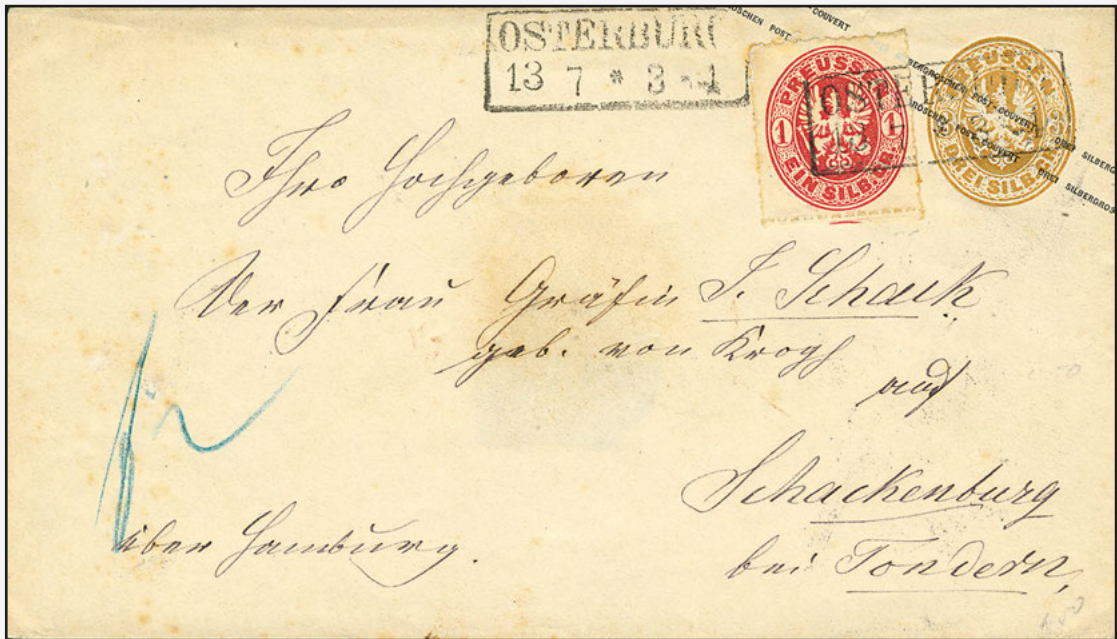 OSTERBURG
13 7 * 3 - 4
PREUSSEN
1 1
EIN SILB. GR.
OSTERBURG
13
PREUSSEN
3 3
DREI SILB. GR.
DREI SILBERGROSCHEN POST-COUVERT
Ihro Hochgeboren
Der Frau Gräfin F. Schack
geb. von Krogh
auf
Schackenburg
bei Tondern,
über Hamburg.